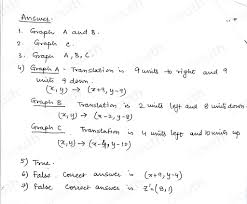 Answer.
1. Graph A and B.
2. Graph C.
3. Graph A, B, C.
4) Graph A - Translation is 9 units to right and 9
units down.
(x,y) → (x+9, y-9)
Graph B Translation is 2 units left and 8 units down.
(x,y) → (x-2, y-8)
Graph C Translation is 4 units left and 10 units up
(x,y) → (x-4, y-10)
5) True.
6) False. Correct answer is (x+9, y-4)
7) False Correct answer is Z'(8,1)